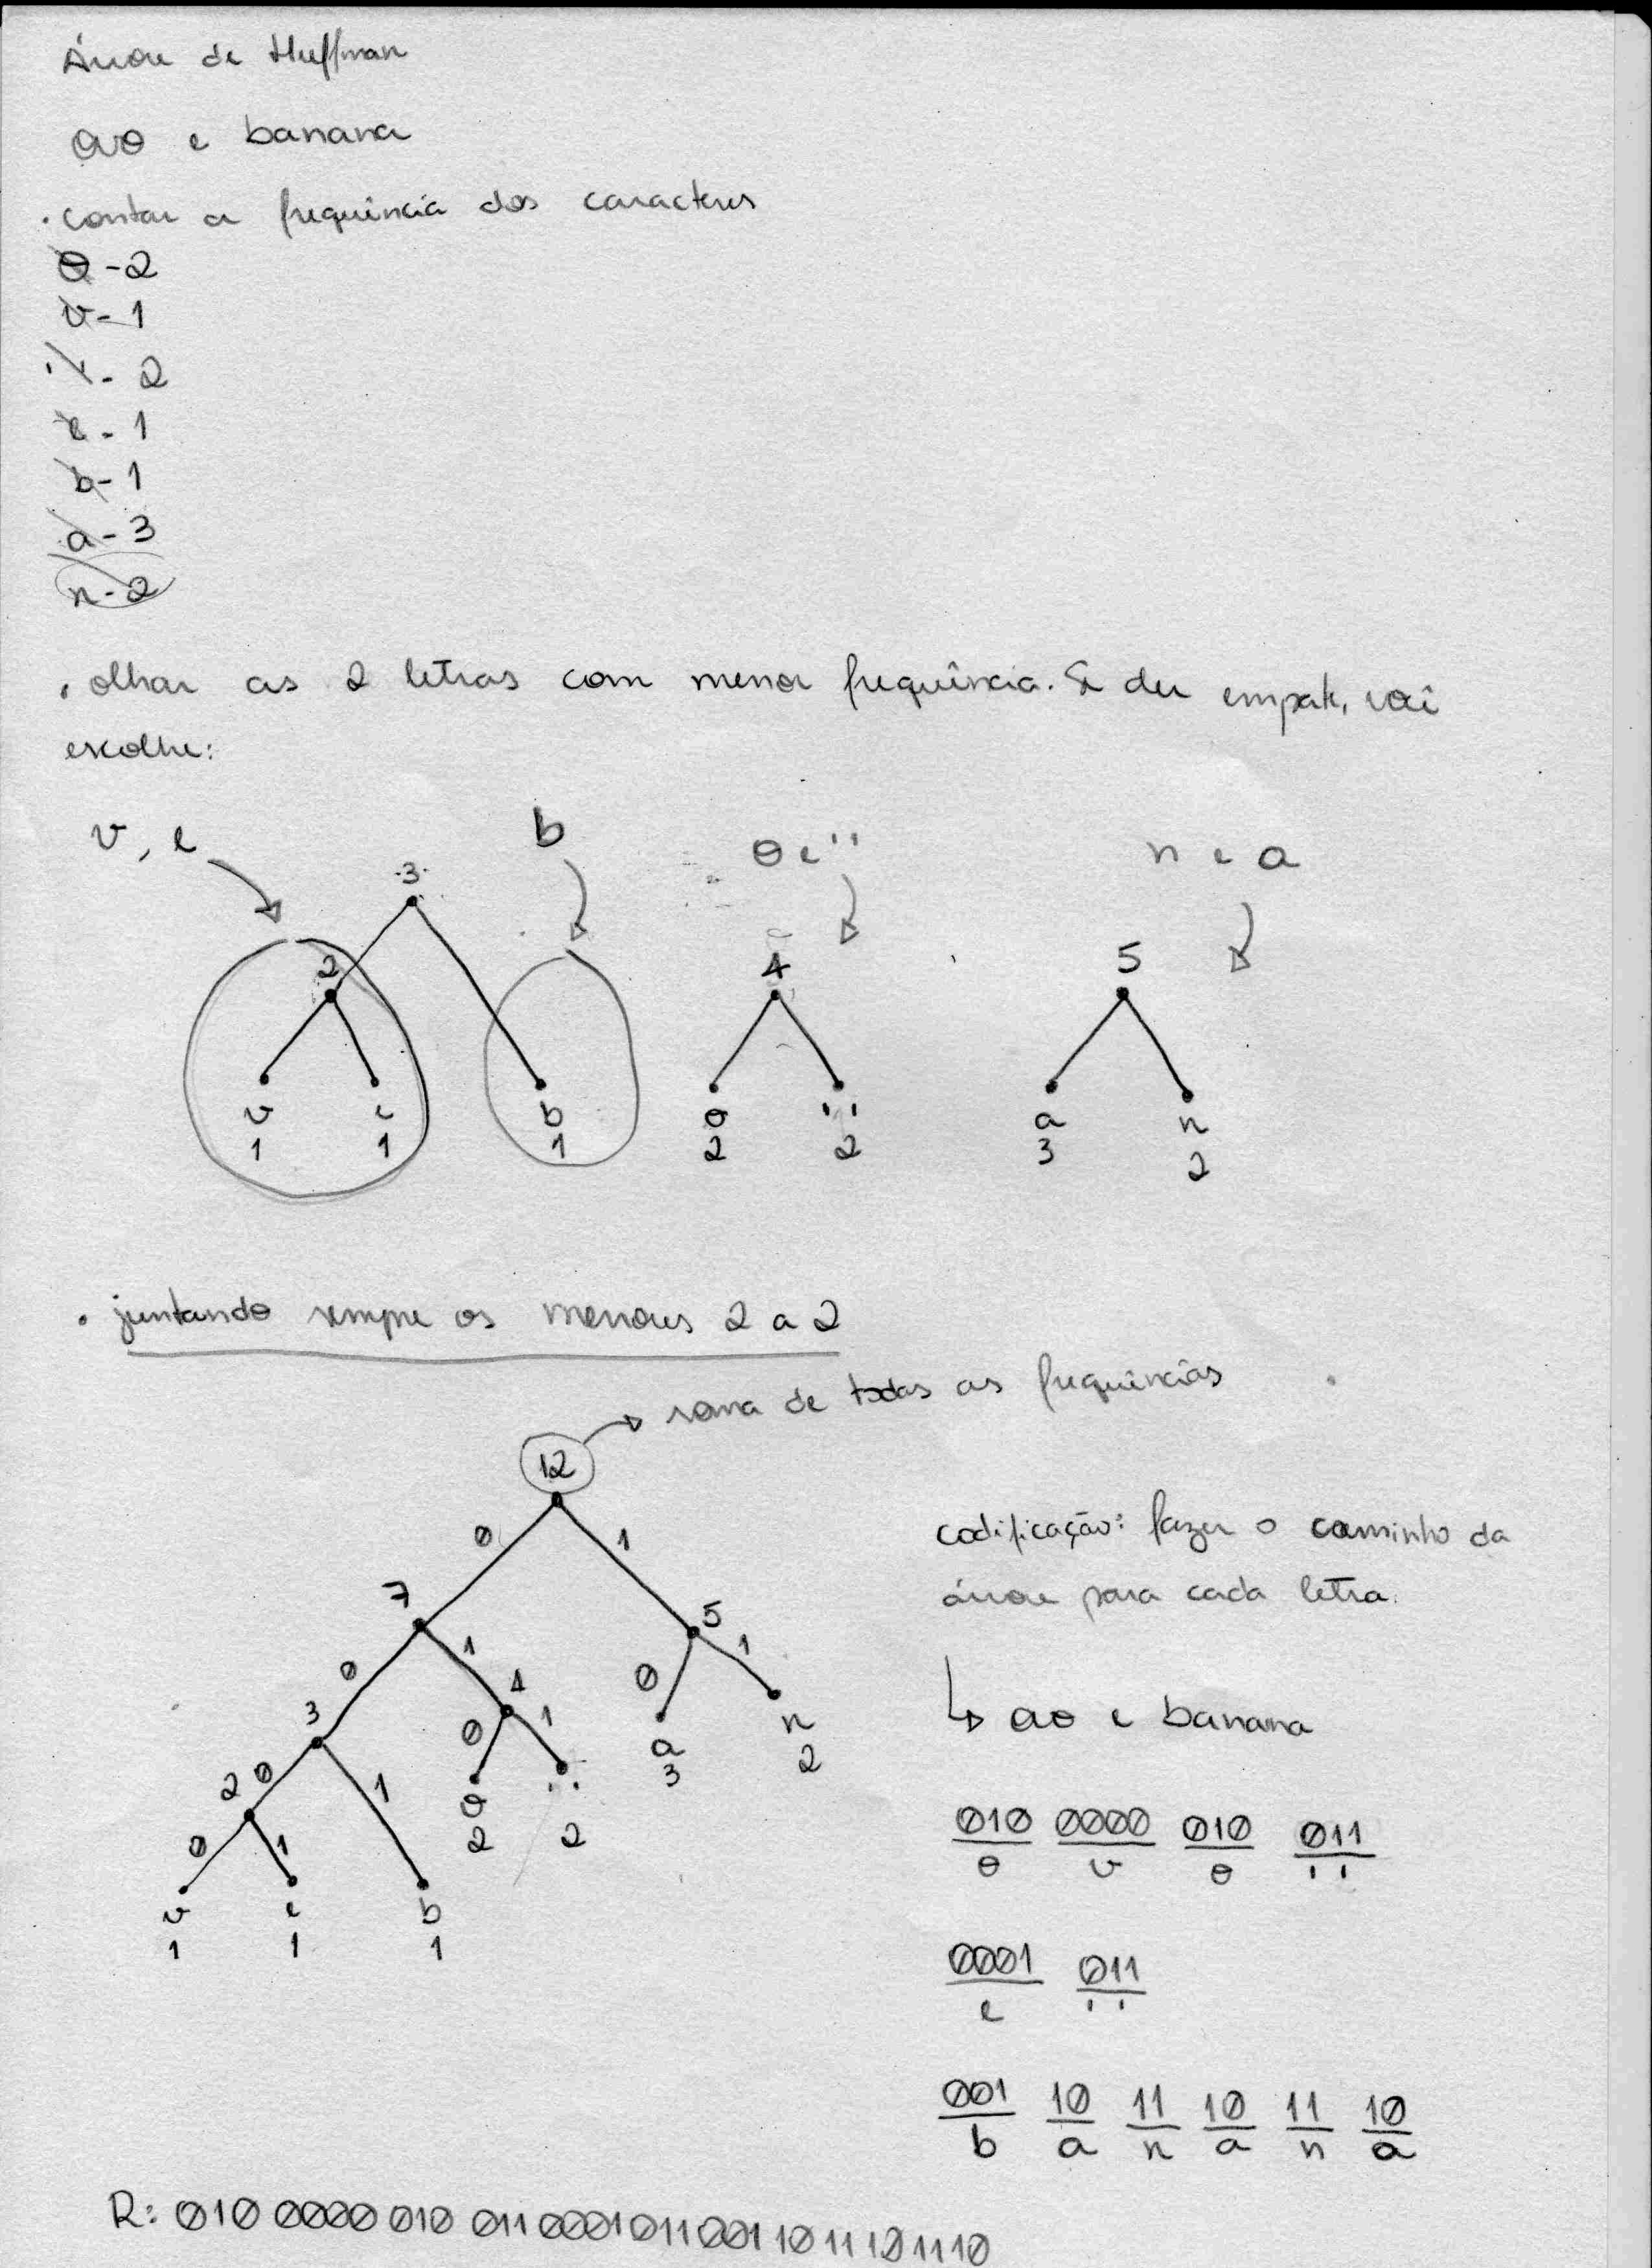 Árvore de Huffman
ovo e banana
· contar a frequência dos caracteres
o - 2
v - 1
' ' - 2
e - 1
b - 1
a - 3
n - 2
· olhar as 2 letras com menor frequência. Se der empate, você
escolhe:
v, e b o e '' n e a
3
2 4 5
v e b o '' a n
1 1 1 2 2 3 2
· juntando sempre os menores 2 a 2
12 → soma de todas as frequências
0 1
7 5
0 1 0 1
3 4
0 1 a n
3 2
2 0 1 o ''
2 2
0 1
v e b
1 1 1
codificação: fazer o caminho da
árvore para cada letra.
↳ ovo e banana
010 0000 010 011
o v o ' '
0001 011
e ' '
001 10 11 10 11 10
b a n a n a
R: 010 0000 010 011 0001 011 001 10 11 10 11 10